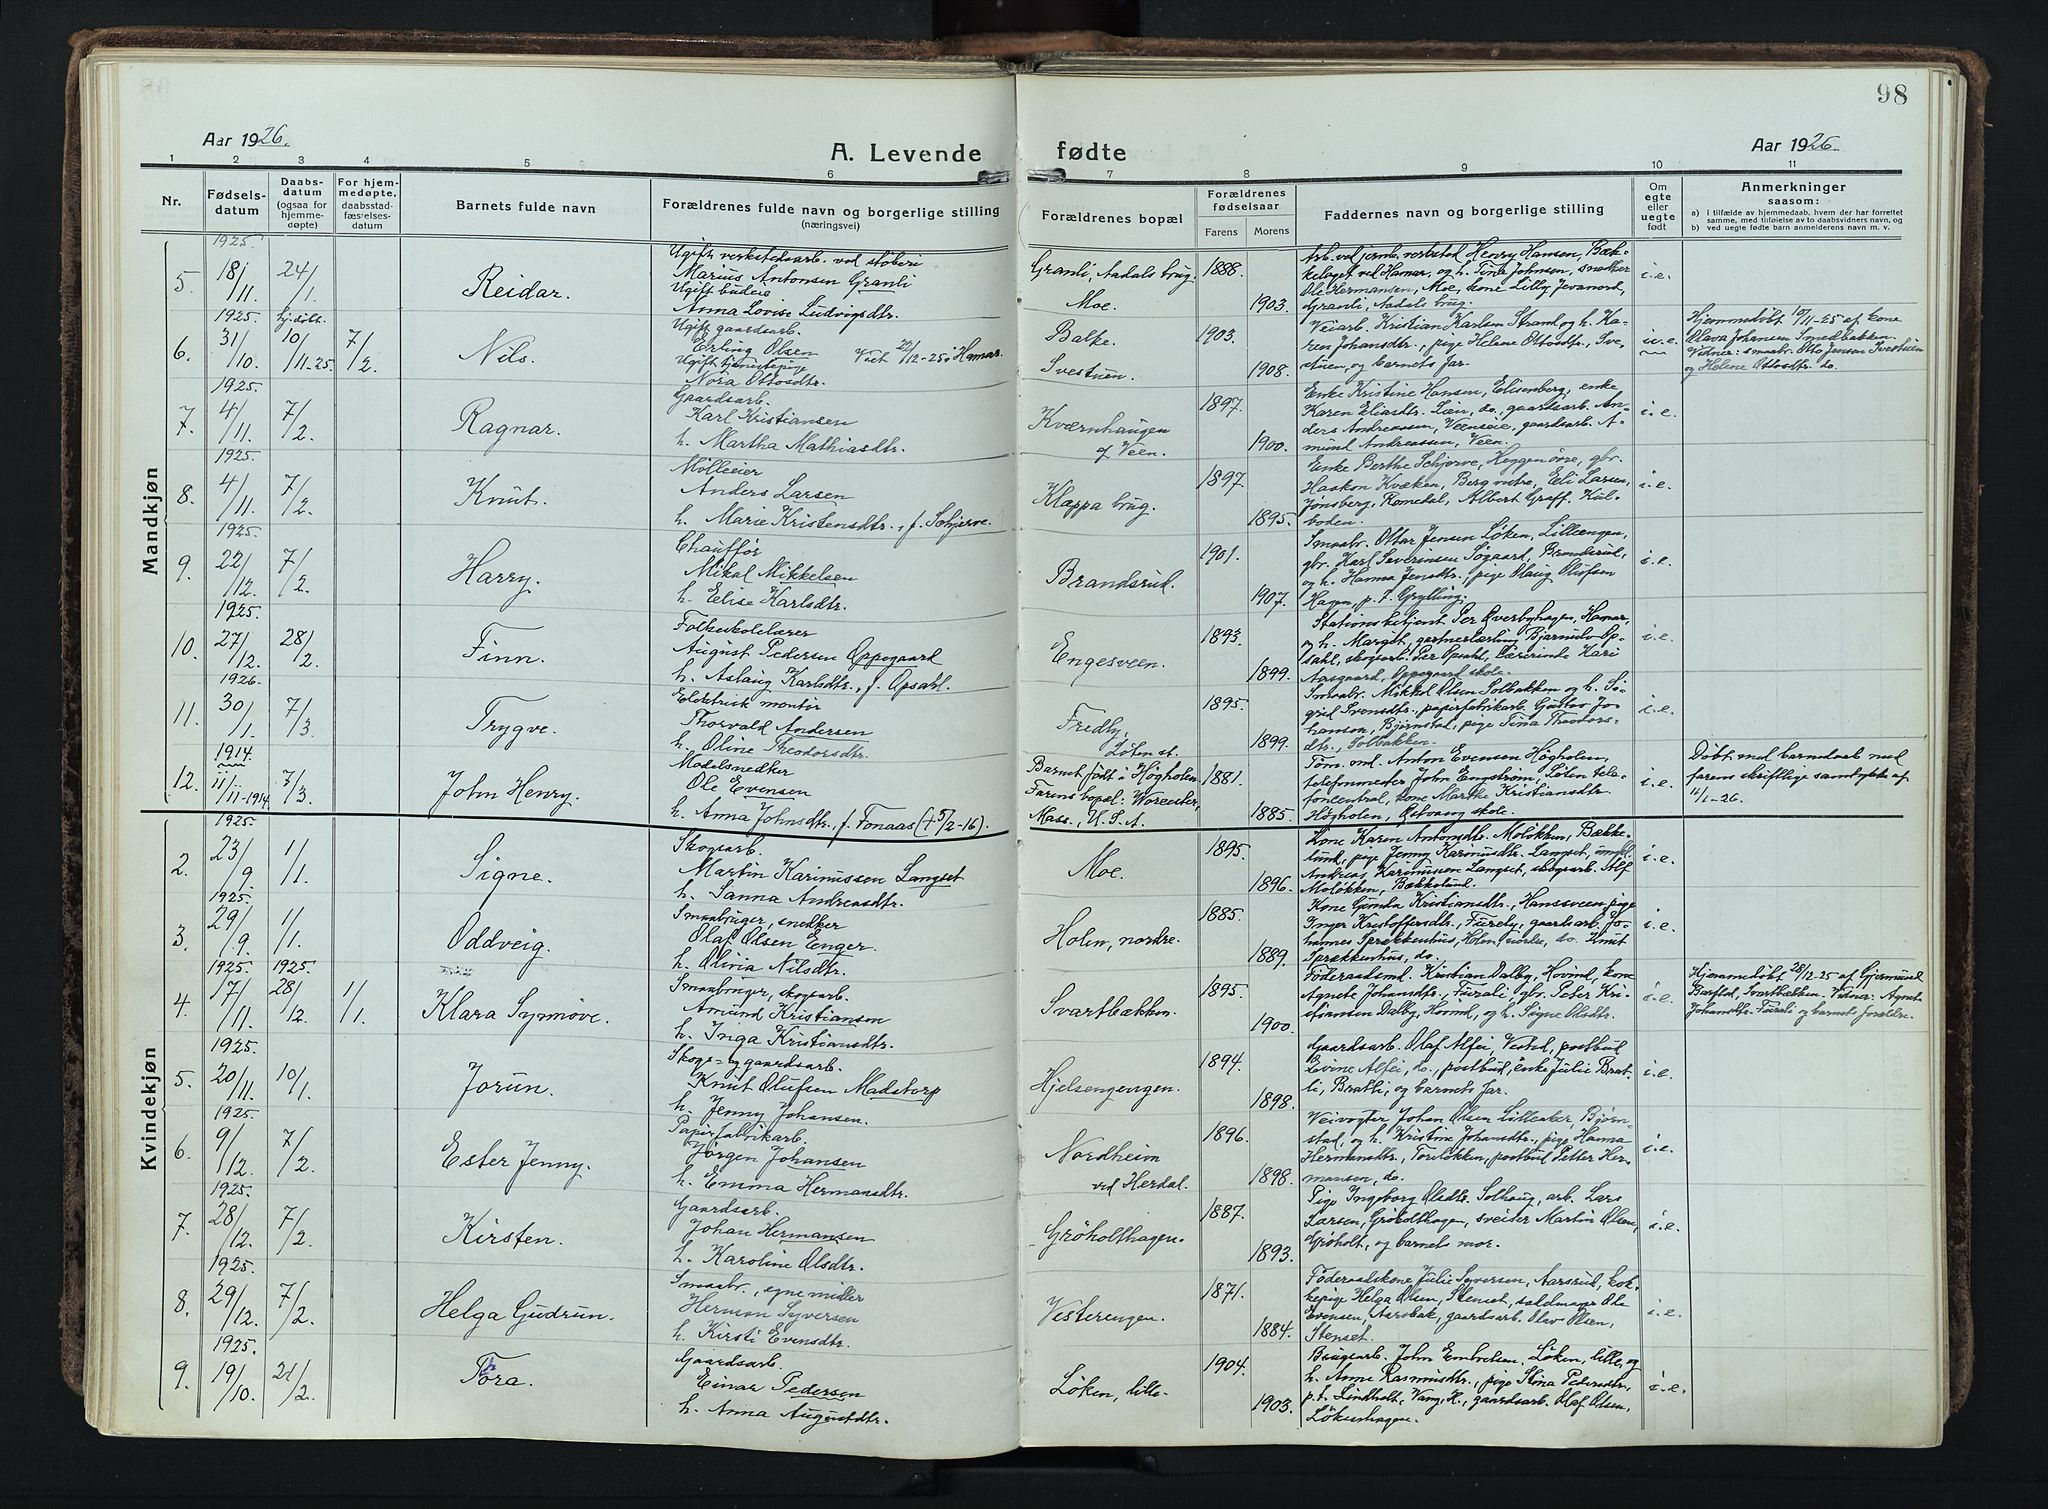 98
Aar 1926.
A. Levende
fødte
Aar 1926.
1 2 3 4 5 6 7 8 9 10 11
Nr.
Fødsels-
datum
Daabs-
datum
(ogsaa for
hjemme-
døpte)
For hjem-
medøpte,
daabsstad-
fæstelses-
datum
Barnets fulde navn
Forældrenes fulde navn og borgerlige stilling
(næringsvei)
Forældrenes bopæl
Forældrenes
fødselsaar
Farens Morens
Faddernes navn og borgerlige stilling
Om
egte
eller
uegte
født
Anmerkninger
saasom:
a) I tilfælde av hjemmedaab, hvem der har forrettet
samme, med tilføielse av to daabsvidners navn, og
b) ved uegte fødte barn anmelderens navn m. v.
Mandkjøn
5.
1925.
18/11.
24/1.
Reidar.
Ugift verkstedsarb. ved støberi
Marius Antonsen Granli
Ugift budeie
Anna Lovise Ludvigsdtr.
Granli, Aadals brug.
Moe.
1888.
1903.
Arb. ved jernb. verksted Henry Hansen, Bæk-
kelaget ved Hamar, og h. Tina Johnsen, snedker
Ole Hermansen, Moe, kone Lilly Jevanord,
Granli, Aadals brug.
i.e.
6.
1925.
31/10.
hj.døbt.
10/11-25.
7/2.
Nils.
Ugift gaardsarb.
Erling Olsen
Viet 22/12-25 i Hamar.
Ugift tjenestepige
Nora Ottosdtr.
Balke.
Svestuen.
1903.
1908.
Veiarb. Kristian Karlsen Strand og h. Ka-
ren Johansdtr., pige Helene Ottosdtr., Sve-
stuen, og barnets far.
u.e.
Hjemmedøbt 10/11-25 af kone
Olava Johansen Smedbakken.
Vidner: smaabr. Otto Jensen Svestuen
og Helene Ottosdtr. do.
7.
1925.
4/11.
7/2.
Ragnar.
Gaardsarb.
Karl Kristiansen
h. Martha Mathiasdtr.
Kværnhaugen
af Veen.
1897.
1900.
Enke Kristine Hansen, Elisenberg, enke
Karen Eliasdtr. Lien, do., gaardsarb. An-
ders Andreassen, Veenseie, gaardsarb. A-
mund Andreassen, Veen.
i.e.
8.
1925.
4/11.
7/2.
Knut.
Mølleeier
Anders Larsen
h. Marie Kristensdtr., f. Schjerve.
Klæppa brug.
1897.
1895.
Enke Berthe Schjerve, Heggenøre, gbr.
Haakon Kvæken, Berg vestre, Eli Larsen,
Jønsberg, Romedal, Albert Graff, Kul-
boden.
i.e.
9.
1925.
22/12.
7/2.
Harry.
Chauffør
Mikal Mikkelsen
h. Elise Karlsdtr.
Brandsrud.
1901.
1907.
Smaabr. Ottar Jensen Løken, Lilleengen,
gbr. Karl Severinsen Søgaard, Brandsrud,
og h. Hanna Jensdtr., pige Olaug Olufsen
Hagen, p. t. Grylling.
i.e.
10.
1925.
27/12.
28/2.
Finn.
Folkeskolelærer
August Pedersen Oppegaard
h. Aslaug Karlsdtr., f. Opsahl.
Engesveen.
1893.
1899.
Stationsbetjent Per Øverbyhagen, Hamar,
og h. Margit, gartnerlærling Bjarnulv Op-
sahl, skogsarb. Per Opsahl, lærerinde Kari
Aasgaard, Oppegaard skole.
i.e.
11.
1926.
30/1.
7/3.
Trygve.
Elektrisk montør
Thorvald Andersen
h. Oline Theodorsdtr.
Fredly,
Løten st.
1895.
1899.
Smaabr. Mikkel Olsen Solbakken og h. Si-
grid Svensdtr., papirfabrikarb. Gustav Jo-
hansen, Bjørnstad, pige Tina Theodors-
dtr., Solbakken.
i.e.
12.
1914.
11/11-1914.
7/3.
John Henry.
Modelsnedker
Ole Evensen
h. Anna Johnsdtr., f. Fonaas (+ 5/2-16).
Barnet født i Høgholen.
Farens bopæl: Worcester,
Mass., U.S.A.
1881.
1885.
Tøm. md. Anton Evensen Høgholen,
telefonmester John Engstrøm, Løten tele-
foncentral, kone Marthe Kristiansdtr.
Høgholen, Østvang skole.
i.e.
Døbt med barnedaab med
farens skriftlige samtykke af
11/1-26.
Kvindekjøn
2.
1925.
23/9.
1/1.
Signe.
Skogsarb.
Martin Karinussen Langset
h. Sanna Andreasdtr.
Moe.
1895.
1896.
Kone Karen Antonsdtr. Moløkken, Bække-
lund, pige Jenny Karinusdtr. Langset, ungk.
Andreas Karinussen Langset, skogsarb. Alf
Moløkken, Bækkelund.
i.e.
3.
1925.
29/9.
1/1.
Oddveig.
Smaabruger, snedker
Olaf Olsen Enger
h. Olivia Nilsdtr.
Holm, nordre.
1885.
1889.
Kone Gunda Kristiansdtr., Hansveen, pige
Inger Kristoffersdtr., Fureby, gaardsarb. Jo-
hannes Sprækkenhus, Holm, nordre, do. Knut
Sprækkenhus, do.
i.e.
4.
1925.
17/11.
1925.
28/12.
1/1.
Klara Synnøve.
Smaabruger, skogsarb.
Amund Kristiansen
h. Inga Kristiansdtr.
Svartbækken.
1895.
1900.
Føderaadsmd. Kristian Dalby, Hovind, kone
Agnete Johansdtr., Furali, gbr. Peter Kri-
stiansen Dalby, Hovind, og h. Signe Olsdtr.
i.e.
Hjemmedøbt 28/12-25 af Gjermund
Barstad, Svartbækken. Vidner: Agnete
Johansdtr. Furali og barnets forældre.
5.
1925.
20/11.
10/1.
Jorun.
Skogs- og gaardsarb.
Knut Olufsen Madstorp
h. Jenny Johansen.
Hjelsengengen.
1894.
1898.
Gaardsarb. Olaf Alfei Vestad, postbud
Lovine Alfei, do., postbud, enke Julie Brat-
li, Bratli, og barnets far.
i.e.
6.
1925.
9/12.
7/2.
Ester Jenny.
Papirfabrikarb.
Jørgen Johansen
h. Emma Hermansdtr.
Nordheim
ved Herdal.
1896.
1898.
Veivogter Johan Olsen Lilleaker, Bjørn-
stad, og h. Kristine Johansdtr., pige Hanna
Hermansdtr., Toreløkken, postbud Petter Her-
mansen, do.
i.e.
7.
1925.
28/12.
7/2.
Kirsten.
Gaardsarb.
Johan Hermansen
h. Karoline Olsdtr.
Grøholthagen.
1887.
1893.
Pige Ingeborg Olsdtr. Solhaug, arb. Lars
Larsen, Grøholthagen, sveiser Martin Olsen,
Grøholt, og barnets mor.
i.e.
8.
1925.
29/12.
7/2.
Helga Gudrun.
Smaabr., egne midler
Herman Syversen
h. Kirsti Evensdtr.
Vesterengen.
1871.
1884.
Føderaadskone Julie Syversen, Aarsrud, kok-
kepige Helga Olsen, Stenset, saldmager Ole
Evensen, Aarsbak, gaardsarb. Olav Olsen,
Stenset.
i.e.
9.
1925.
19/10.
21/2.
Thora.
Gaardsarb.
Einar Pedersen
h. Anna Augustdtr.
Løken, lille.
1904.
1903.
Brugsarb. John Embretsen, Løken, lille, og
h. Anne Rasmusdtr., pige Stina Pedersdtr.,
p.t. Lindholt, Vang, H., gaardsarb. Olaf Olsen,
Løkenhagen.
i.e.